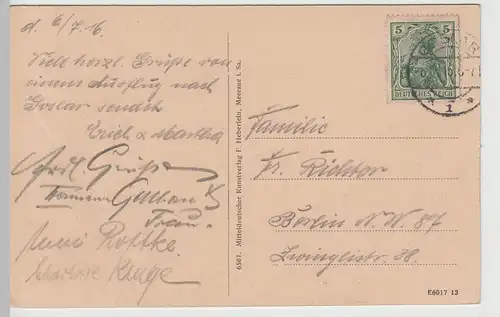 d. 6/7.16.
Viele herzl. Grüße von
einem Ausflug nach
Goslar sendet
Erich & Martha
Herzl. Grüße
Frau.
Rottke.
Kluge
6507. Mitteldeutscher Kunstverlag F. Heberlein, Meerane i. Sa.
5 5
DEUTSCHES REICH
* 1 *
Familie
Fr. Richter
Berlin N.W. 87
Zwinglistr. 38.
E6017 13